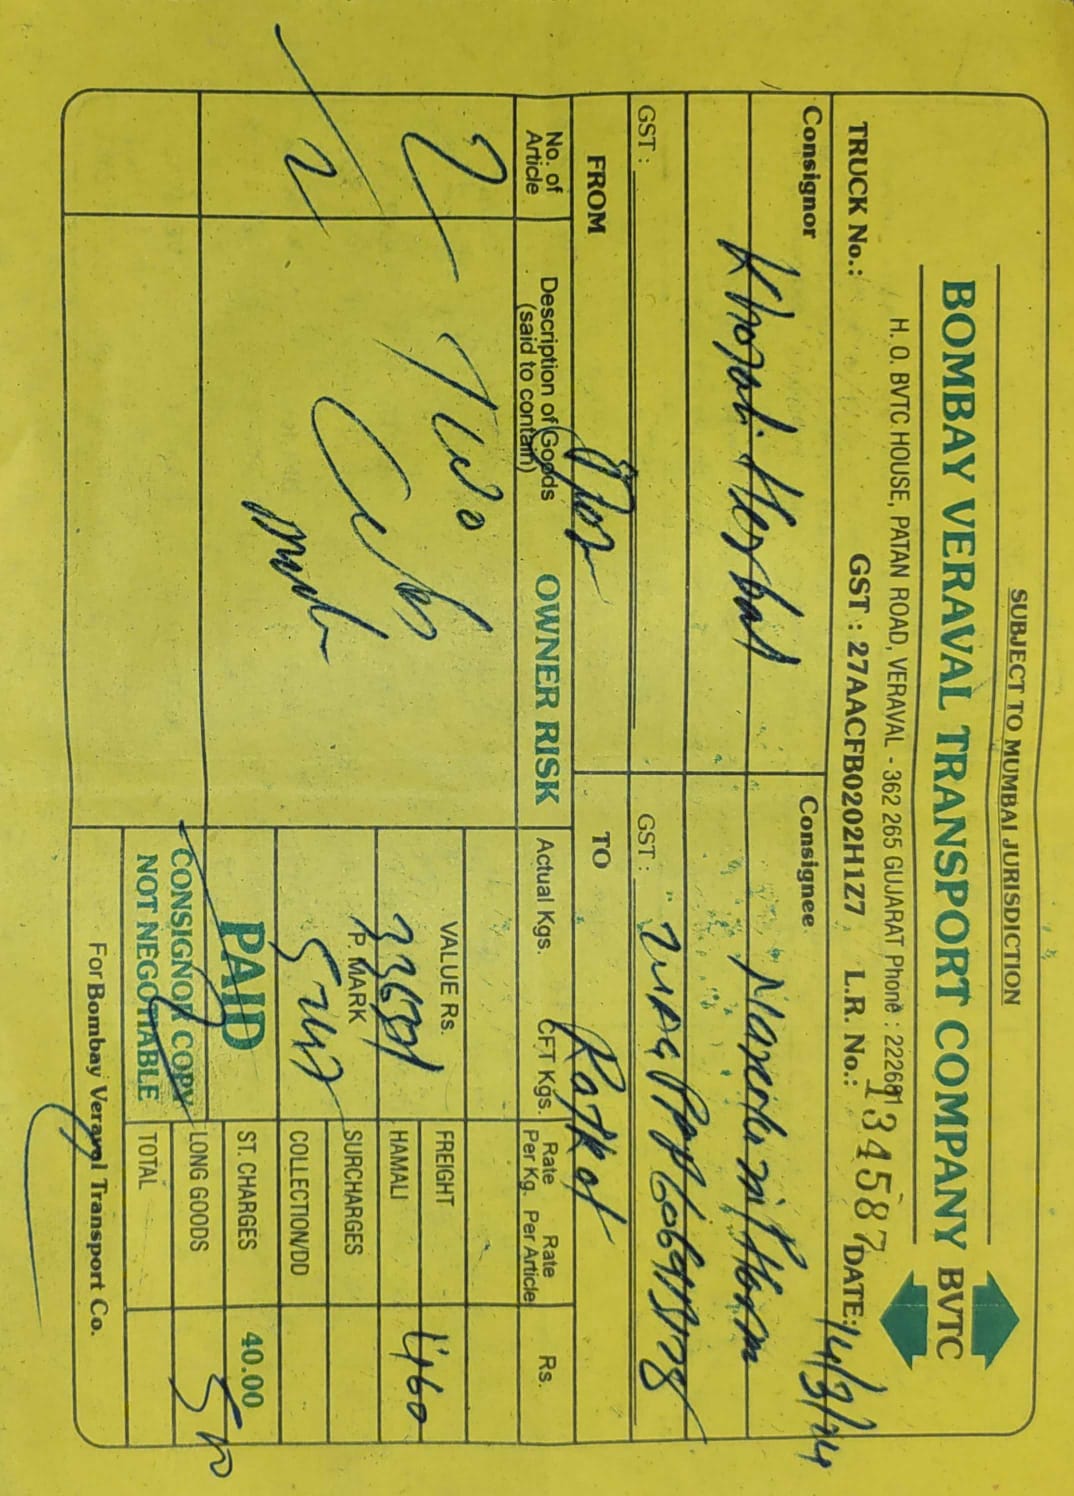 SUBJECT TO MUMBAI JURISDICTION
BOMBAY VERAVAL TRANSPORT COMPANY BVTC
H. O. BVTC HOUSE, PATAN ROAD, VERAVAL - 362 265 GUJARAT Phone : 222681
TRUCK No.: GST : 27AACFB0202H1Z7 L.R. No.: 134587 DATE: 14/3/24
Consignor Consignee
Khojati Herbal
GST : GST :
FROM TO Rajkot
No. of Article Description of Goods (said to contain) OWNER RISK Actual Kgs. CFT Kgs. Rate Per Kg. Rate Per Article Rs.
2 Two
VALUE Rs. FREIGHT 460
HAMALI
P. MARK SURCHARGES
COLLECTION/DD
2 PAID ST. CHARGES 40.00
CONSIGNOR COPY LONG GOODS
NOT NEGOTIABLE TOTAL
For Bombay Veraval Transport Co.